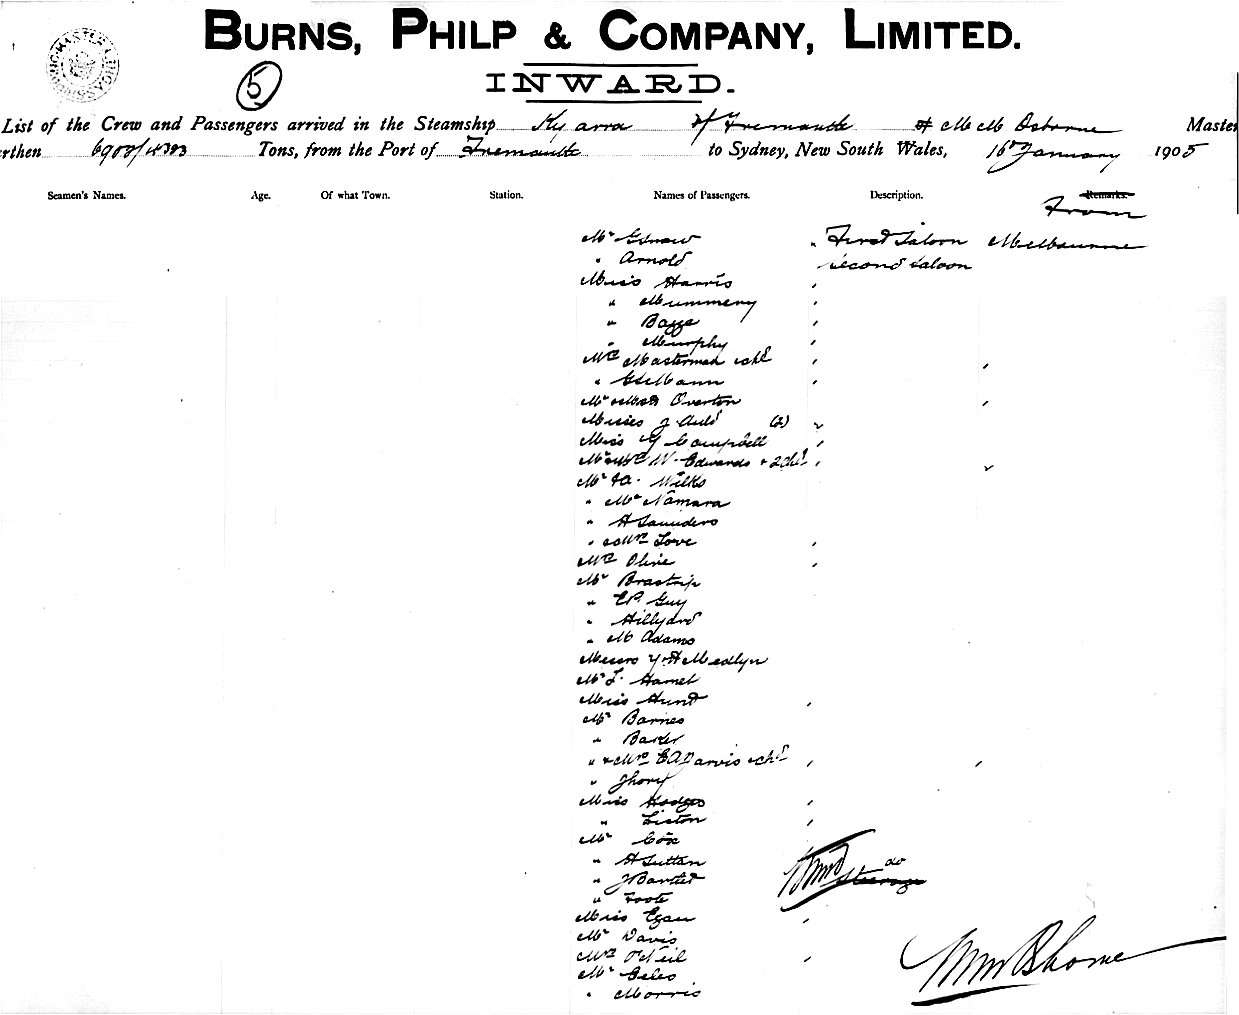 BURNS, PHILP & COMPANY, LIMITED.
5
INWARD.
List of the Crew and Passengers arrived in the Steamship Kyarra of Fremantle of M M Osborne Master
rthen Tons, from the Port of Fremantle to Sydney, New South Wales, 16th January 1905
Seamen's Names. Age. Of what Town. Station. Names of Passengers. Description. Remarks.
From
Mr First Saloon Melbourne
" Arnold Second Saloon
Miss Harris "
" Mummery "
" Bagge "
" Murphy "
Mrs Masterman & chd " "
" "
Mr & Mrs Overton "
Misses J Auld (2) "
Miss G Campbell "
Mr & Mrs W. Edwards & 2 Chd " "
Mr Wilks
" McNamara
" H Saunders
" & Mrs Love "
Mrs Olive "
Mr
" E P. Guy
" Hillyard
" M Adams
Messrs Y & H Medlyn
Mr L. Hamel
Miss Hund "
Mr Barnes
" Baker
" & Mrs E A Jarvis & chd " "
"
Miss Hodges "
" Liston "
Mr Cox
" H Sutton do
" J Steerage
" Foote
Miss Egan "
Mr Davis
Mrs O'Neil "
Mr
" Morris